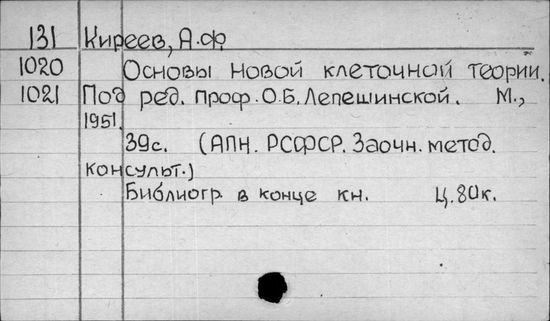 131 Киреев, А.Ф
1020 Основы новой клеточной теории.
1021 Под ред. проф. О.Б. Лепешинской. М.,
1951.
39с. (АПН. РСФСР. Заочн. метод.
консульт.)
Библиогр. в конце кн. Ц.80к.